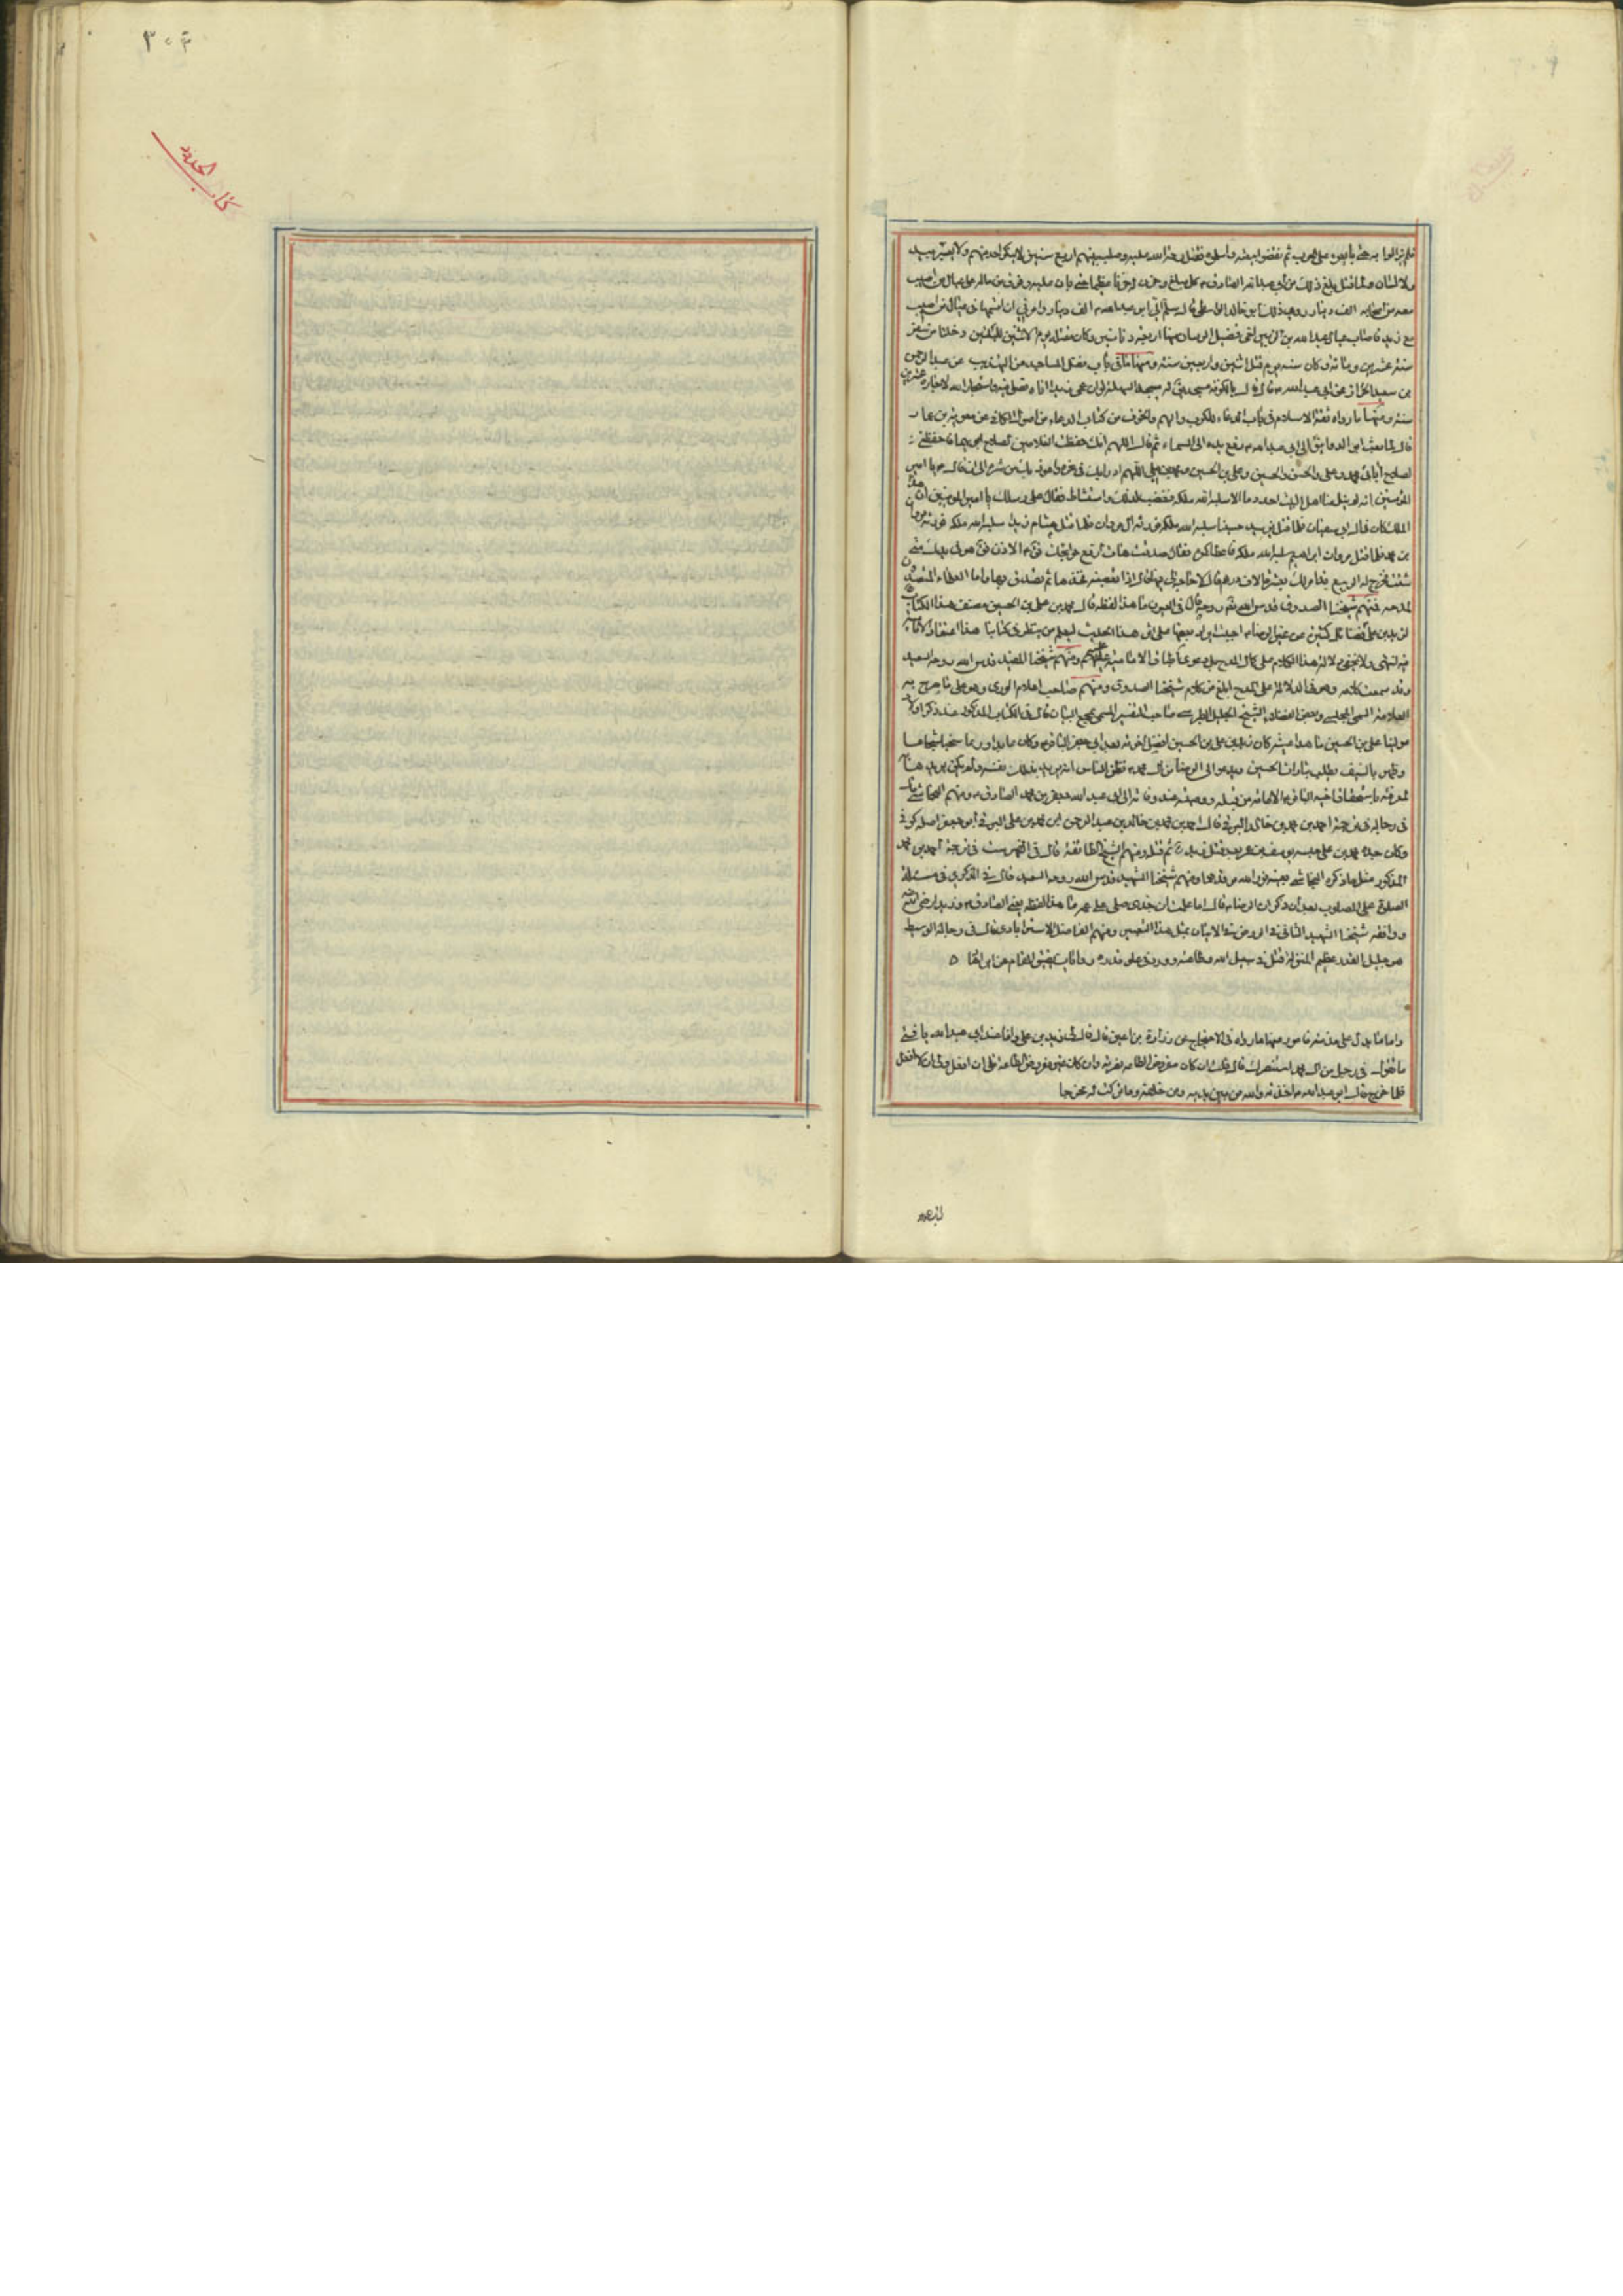 ٣٠٤
كتاب الحدود
فلم يزالوا به حتى بايعوه على الحرب ثم نقضوا بيعته واسلموه فقتل رحمة الله عليه وصلب بينهم اربع سنين لا ينكر احد منهم ولا يعينه بيد
ولا لسان ولما قتل بلغ ذلك من ابي عبد الله الصادق كل مبلغ وحزن له حزنا عظيما حتى بان عليه وفرق من ماله على عيال من اصيب
معه من اصحابه الف دينار روى ذلك ابو خالد الواسطي قال سلم الي ابو عبد الله الف دينار وامرني ان اقسمها في عيال من اصيب
مع زيد فاصاب عيال عبد الله بن الزبير اخي فضيل الرسان منها اربعة دنانير وكان مقتله يوم الاثنين لليلتين خلتا من صفر
سنة عشرين ومائة وكان سنه يوم قتل اثنين واربعين سنة ومنها ما في باب فضل المساجد من التهذيب عن عبد الرحمن
بن سعيد الخزاز عن ابي عبد الله قال قال بالكوفة مسجد يقال له مسجد السهلة لو ان عمي زيدا اتاه فصلى فيه واستجار الله لاجاره عشرين
سنة ومنها ما رواه ثقة الاسلام في باب الدعاء للكرب والهم والخوف من كتاب الدعاء من اصول الكافي عن معوية بن عمار
قال لما بعث ابو الدوانيق الى ابي عبد الله رفع يده الى السماء ثم قال اللهم انك حفظت الغلامين لصلاح ابويهما فاحفظني
لصلاح آبائي محمد وعلي والحسن والحسين وعلي بن الحسين ومحمد بن علي اللهم اني ادرأ بك في نحره واعوذ بك من شره الى ان قال يا امير
المؤمنين انه لم ينل منا اهل البيت احد دما الا سلبه الله ملكه فغضب لذلك واستشاط فقال على رسلك يا امير المؤمنين ان هذا
الملك كان في آل ابي سفيان فلما قتل يزيد حسينا سلبه الله ملكه فورثه آل مروان فلما قتل هشام زيدا سلبه الله ملكه فورثه مروان
بن محمد فلما قتل مروان ابراهيم سلبه الله ملكه فاعطاكموه فقال صدقت هات ارفع حوائجك فقال الاذن فقال هو في يدك متى
شئت فخرج له الربيع قد امر لك بعشرة الاف درهم قال لا حاجة لي فيها قال اذا تغضبه فخذها ثم تصدق بها واما العلماء المتصدون
لمدحه فمنهم شيخنا الصدوق قدس الله روحه قال في العيون ما هذا لفظه قال محمد بن علي بن الحسين مصنف هذا الكتاب
لزيد بن علي فضائل كثيرة عن غير الرضا احببت ايراد بعضها على اثر هذا الحديث ليعلم من ينظر في كتابنا هذا اعتقاد الامامية
فيه انتهى ولا يخفى دلالة هذا الكلام على كمال المدح بل دعوى اطباق الامامية عليهم ومنهم شيخنا المفيد قدس الله روحه السعيد
وقد سمعت كلامه وهو في الدلالة على المدح ابلغ من كلام شيخنا الصدوق ومنهم صاحب اعلام الورى وهو على ما صرح به
العلامة السمي المجلسي وبعض الفضلاء الشيخ الجليل الطبرسي صاحب التفسير المسمى بمجمع البيان قال في الكتاب المذكور عند ذكر اولاد
مولينا علي بن الحسين ما هذا عينه كان زيد بن علي بن الحسين افضل اخوته بعد ابي جعفر الباقر وكان عابدا ورعا سخيا شجاعا
وظهر بالسيف يطلب بثارات الحسين ويدعو الى الرضا من آل محمد فظن الناس انه يريد بذلك نفسه ولم يكن يريدها
لمعرفته باستحقاق اخيه الباقر الامامة من قبله ووصيته عند وفاته الى ابي عبد الله جعفر بن محمد الصادق ومنهم النجاشي قال
في رجاله في ترجمة احمد بن محمد بن خالد البرقي قال احمد بن محمد بن خالد بن عبد الرحمن بن محمد بن علي البرقي ابو جعفر اصله كوفي
وكان جده محمد بن علي حبسه يوسف بن عمر بعد قتل زيد ثم قتله ومنهم الشيخ الطائفة قال في الفهرست في ترجمة احمد بن محمد
المذكور مثل ما ذكره النجاشي بعينه نور الله مرقدهما ومنهم شيخنا الشهيد قدس الله روحه السعيد قال في الذكرى في مسئلة
الصلوة على المصلوب بعد ان ذكر ان الرضا قال اما علمت ان جدي صلى على عمه ما هذا لفظه يعني الصادق وزيدا رضي الله عنه
ووافقه شيخنا الشهيد الثاني في الروض في الاتيان بمثل هذا التفسير ومنهم الفاضل الاسترابادي قال في رجاله الوسيط
هو جليل القدر عظيم المنزلة قتل في سبيل الله وطاعته وورد في علو قدره روايات يضيق المقام عن ايرادها
واما ما يدل على مذمته فامور منها ما رواه في الاحتجاج عن زرارة بن اعين قال قال لي زيد بن علي وانا عند ابي عبد الله يا فتى
ما تقول في رجل من آل محمد استنصرك قال قلت ان كان مفروض الطاعة نصرته وان كان غير مفروض الطاعة فلي ان افعل ولي ان لا افعل
فلما خرج قال ابو عبد الله اخذته والله من بين يديه ومن خلفه وما تركت له مخرجا